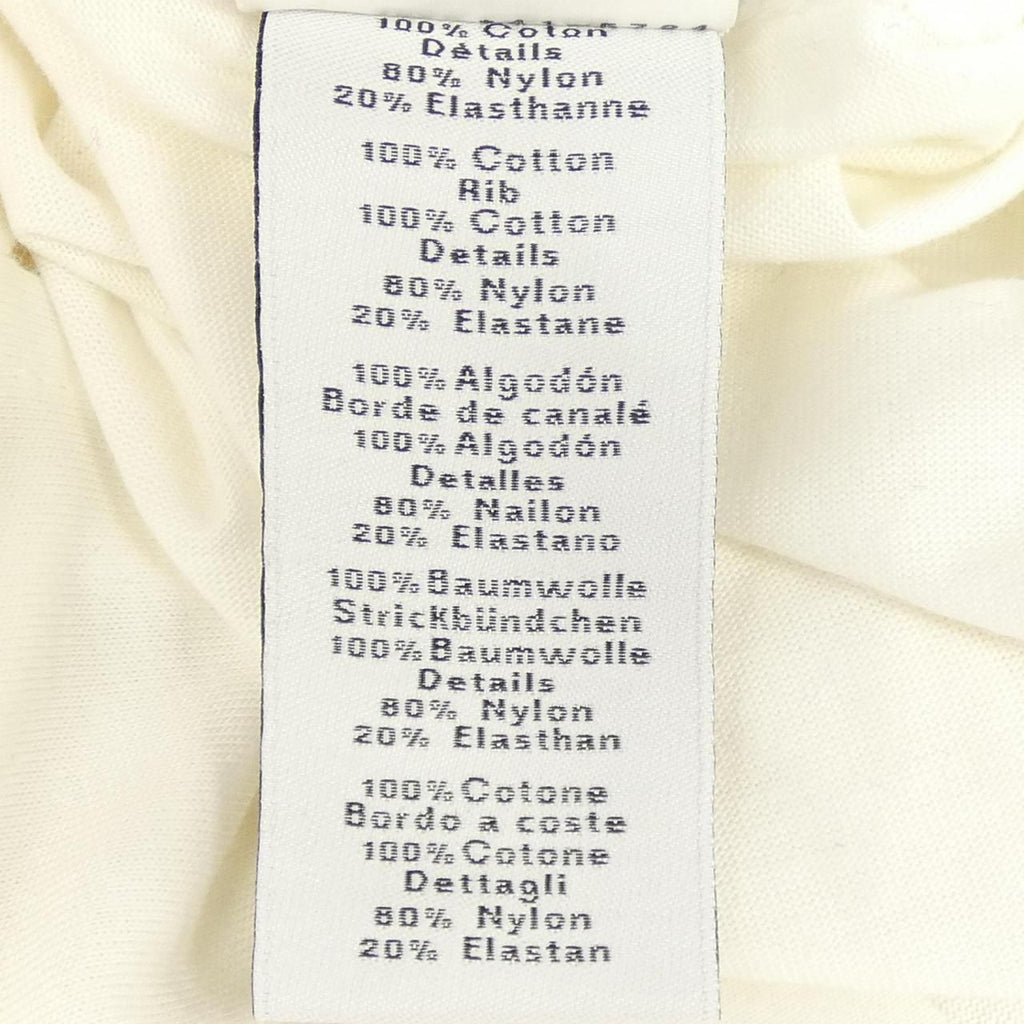 100% Coton
Détails
80% Nylon
20% Elasthanne
100% Cotton
Rib
100% Cotton
Details
80% Nylon
20% Elastane
100% Algodón
Borde de canalé
100% Algodón
Detalles
80% Nailon
20% Elastano
100% Baumwolle
Strickbündchen
100% Baumwolle
Details
80% Nylon
20% Elasthan
100% Cotone
Bordo a coste
100% Cotone
Dettagli
80% Nylon
20% Elastan